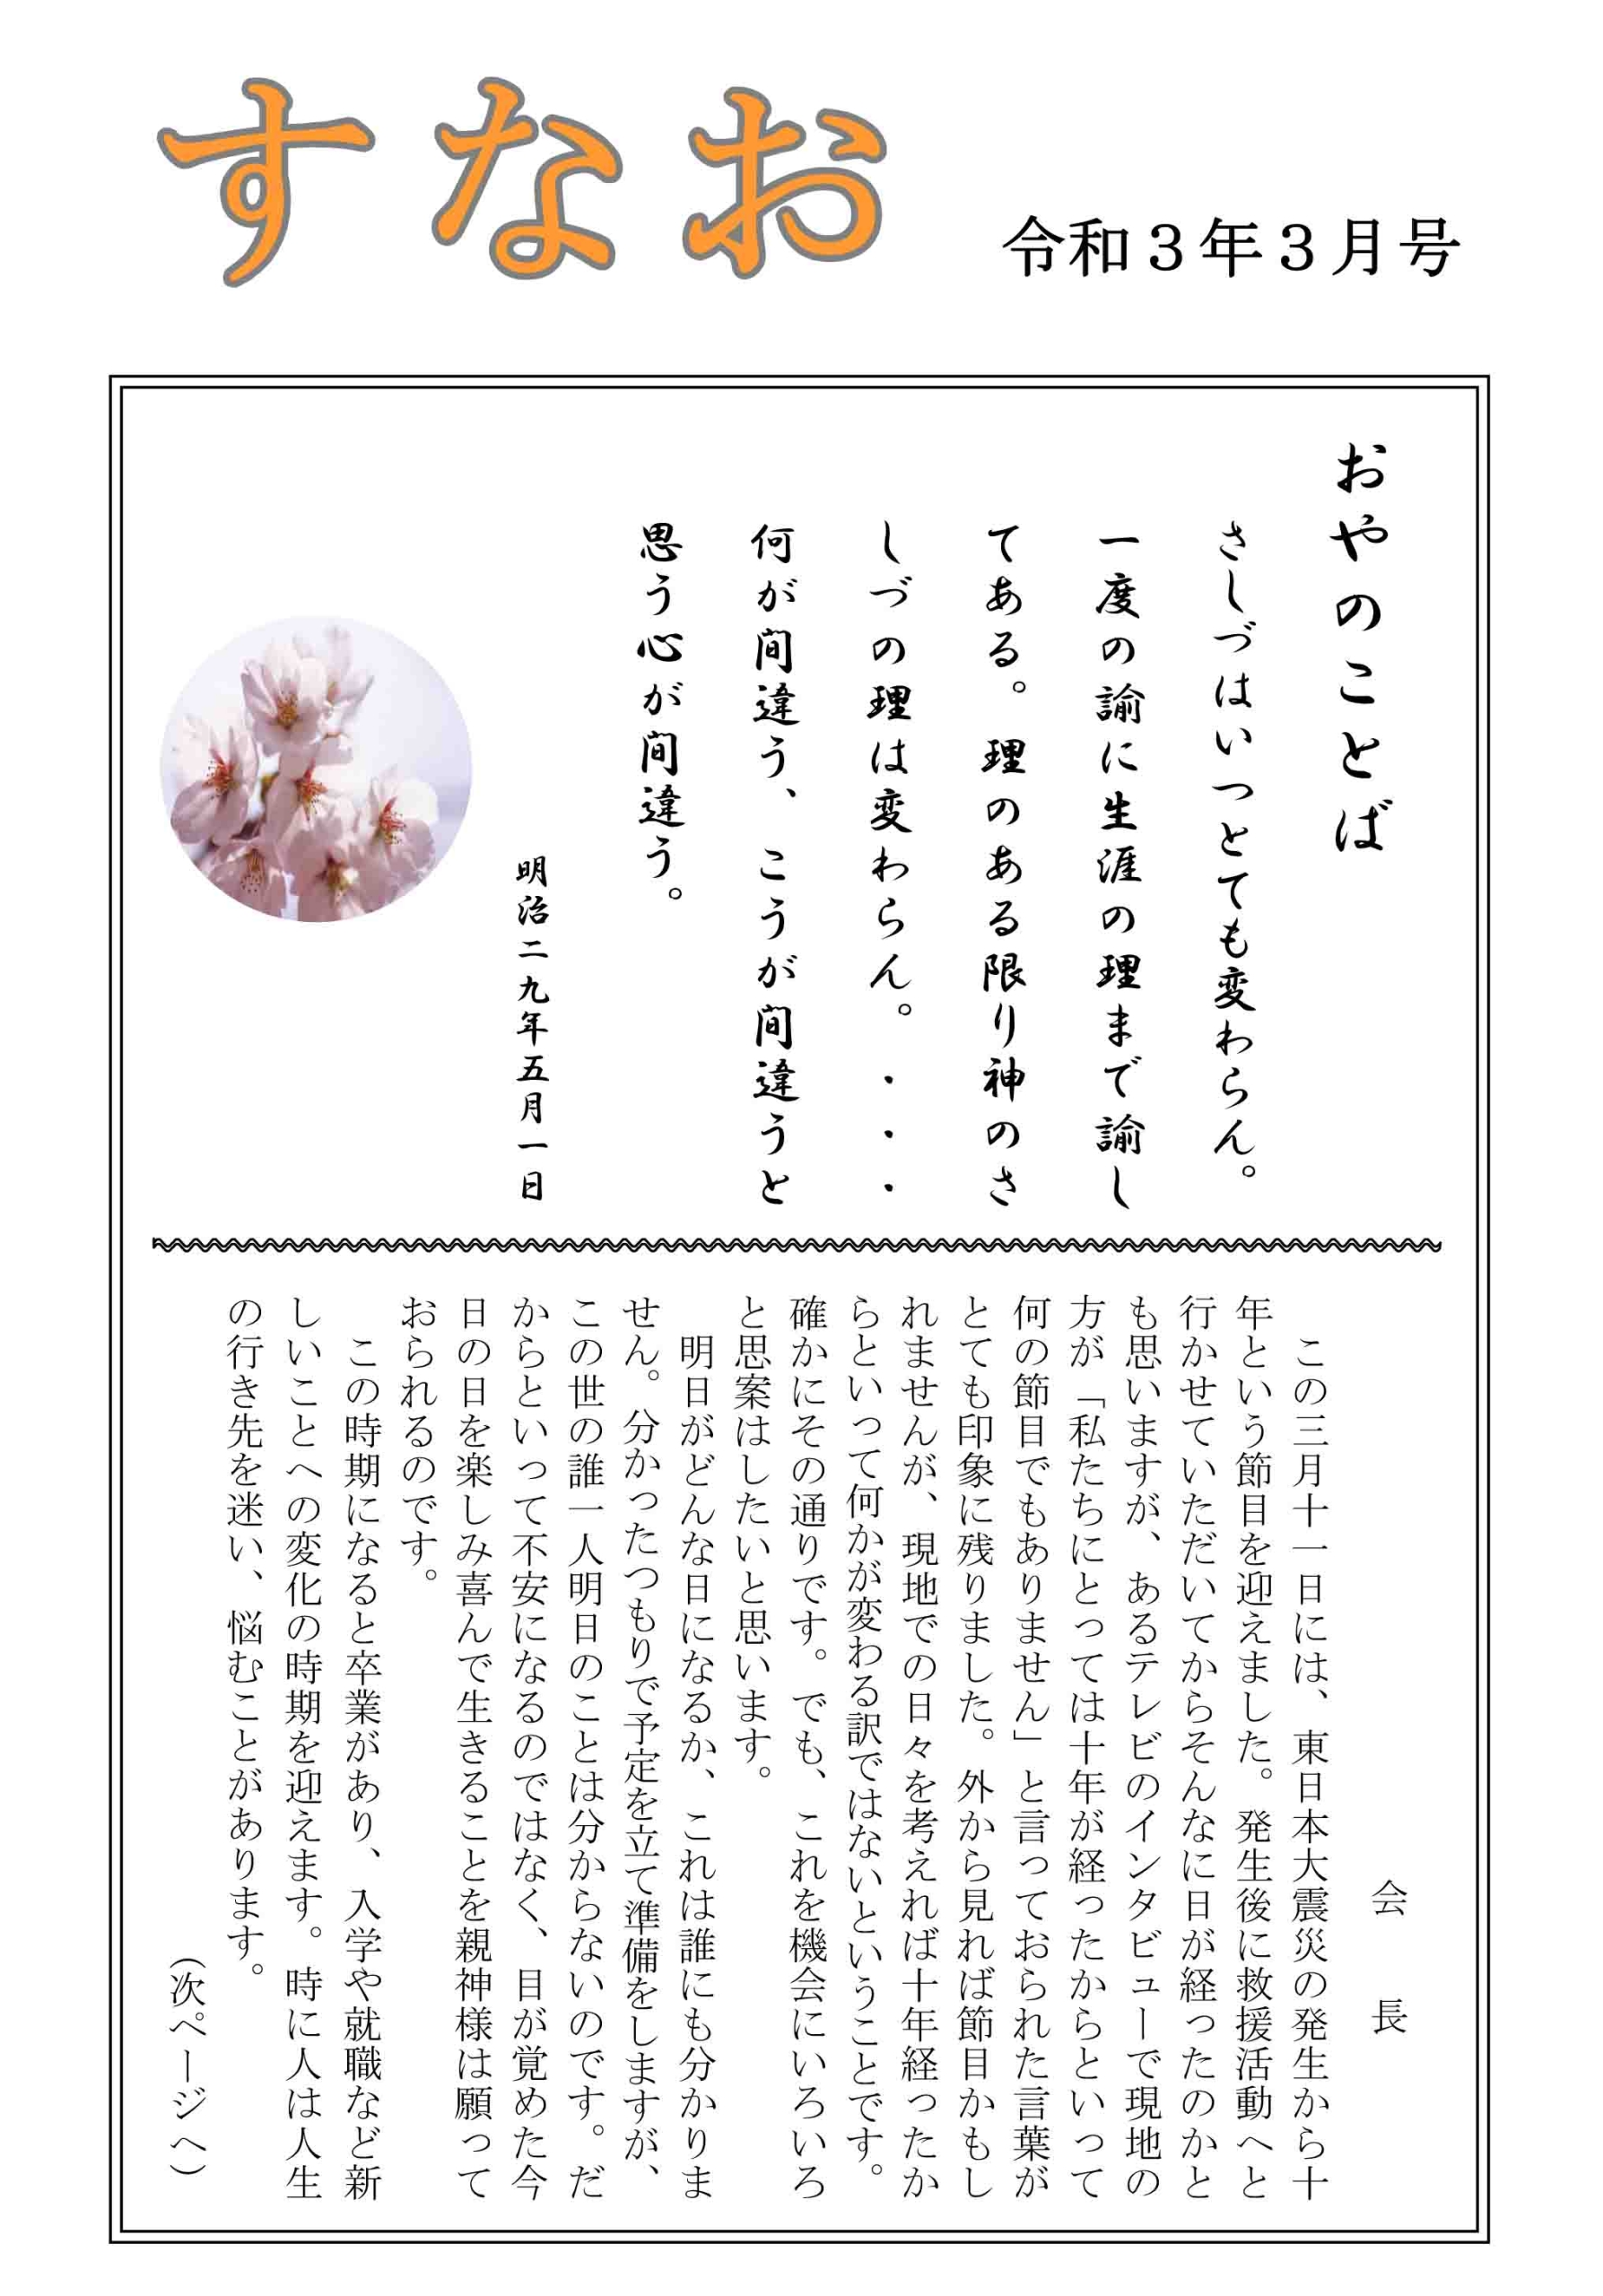 すなお
令和３年３月号
おやのことば
さしづはいつとても変わらん。
一度の諭に生涯の理まで諭し
てある。理のある限り神のさ
しづの理は変わらん。・・・
何が間違う、こうが間違うと
思う心が間違う。
明治二九年五月一日
会　長
この三月十一日には、東日本大震災の発生から十
年という節目を迎えました。発生後に救援活動へと
行かせていただいてからそんなに日が経ったのかと
も思いますが、あるテレビのインタビューで現地の
方が「私たちにとっては十年が経ったからといって
何の節目でもありません」と言っておられた言葉が
とても印象に残りました。外から見れば節目かもし
れませんが、現地での日々を考えれば十年経ったか
らといって何かが変わる訳ではないということです。
確かにその通りです。でも、これを機会にいろいろ
と思案はしたいと思います。
明日がどんな日になるか、これは誰にも分かりま
せん。分かったつもりで予定を立て準備をしますが、
この世の誰一人明日のことは分からないのです。だ
からといって不安になるのではなく、目が覚めた今
日の日を楽しみ喜んで生きることを親神様は願って
おられるのです。
この時期になると卒業があり、入学や就職など新
しいことへの変化の時期を迎えます。時に人は人生
の行き先を迷い、悩むことがあります。
（次ページへ）